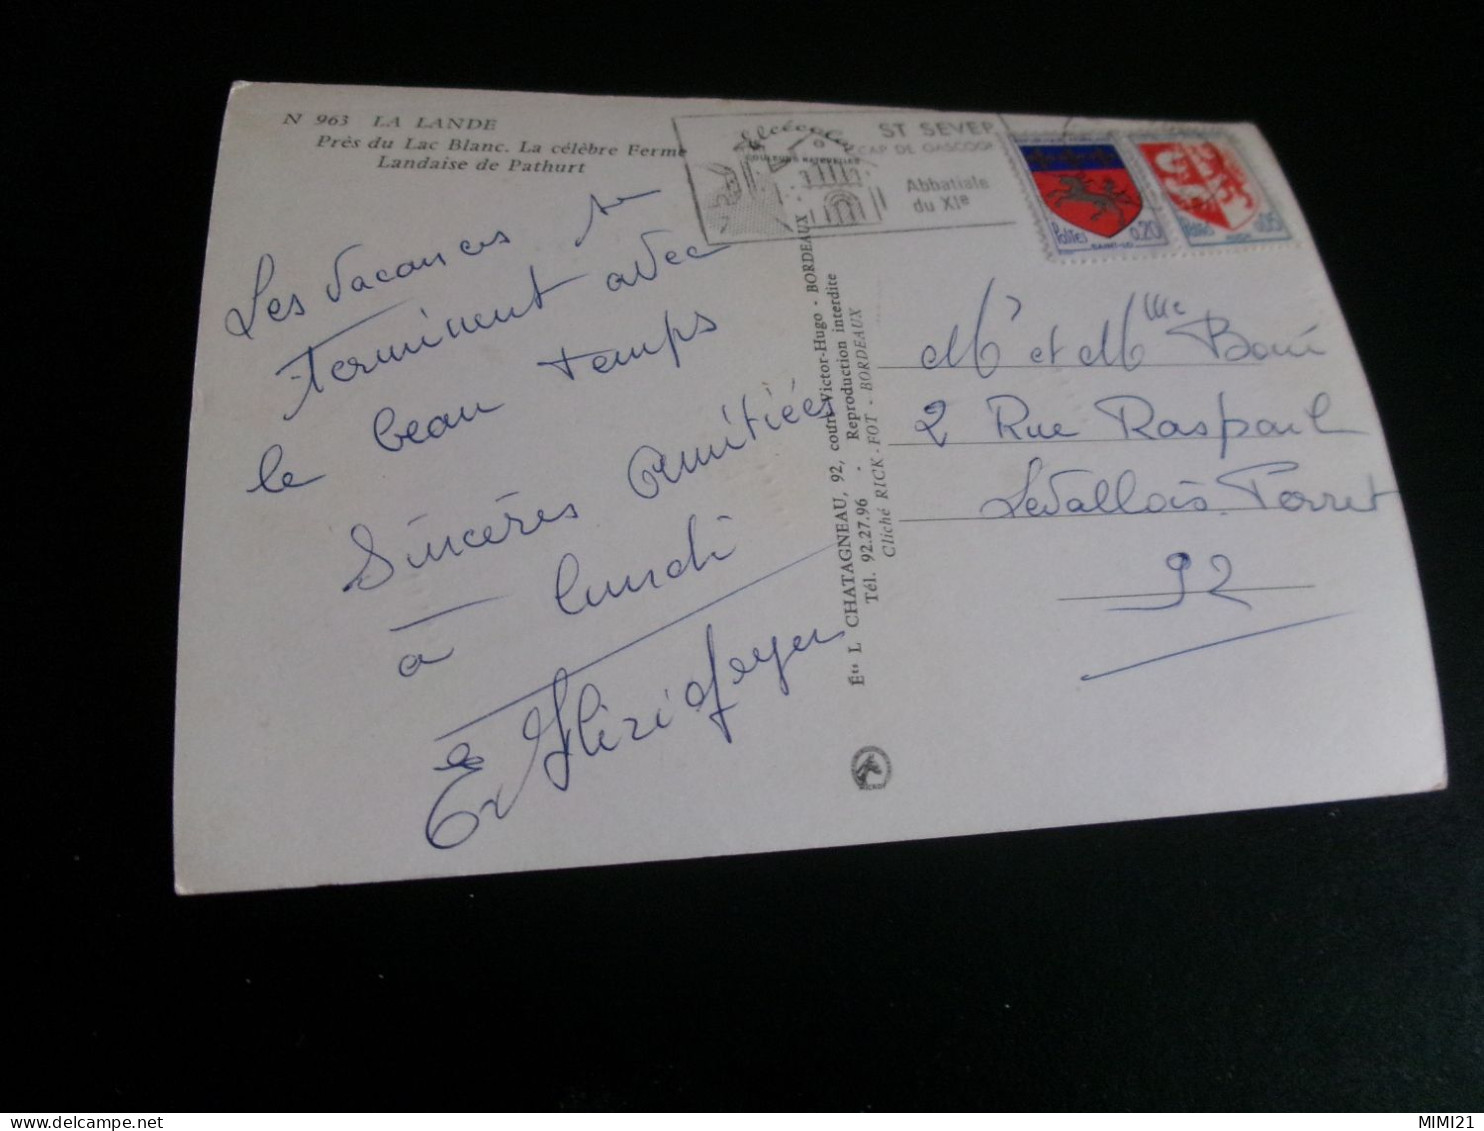 N 963 LA LANDE
Près du Lac Blanc. La célèbre Ferme
Landaise de Pathurt
Les vacances se
terminent avec
le beau temps
Sincères amitiées
à lundi
ST SEVER
CAP DE GASCOGN
Abbatiale
du XIe
COULEURS NATURELLES
POSTES
0,20
SAINT-LO
0,05
Mr et Mme
2 Rue Raspail
Levallois. Perret
92
Éts L CHATAGNEAU, 92, cours Victor-Hugo - BORDEAUX -
Tél. 92.27.96 - Reproduction interdite
Cliché RICK-FOT - BORDEAUX
MIMI21